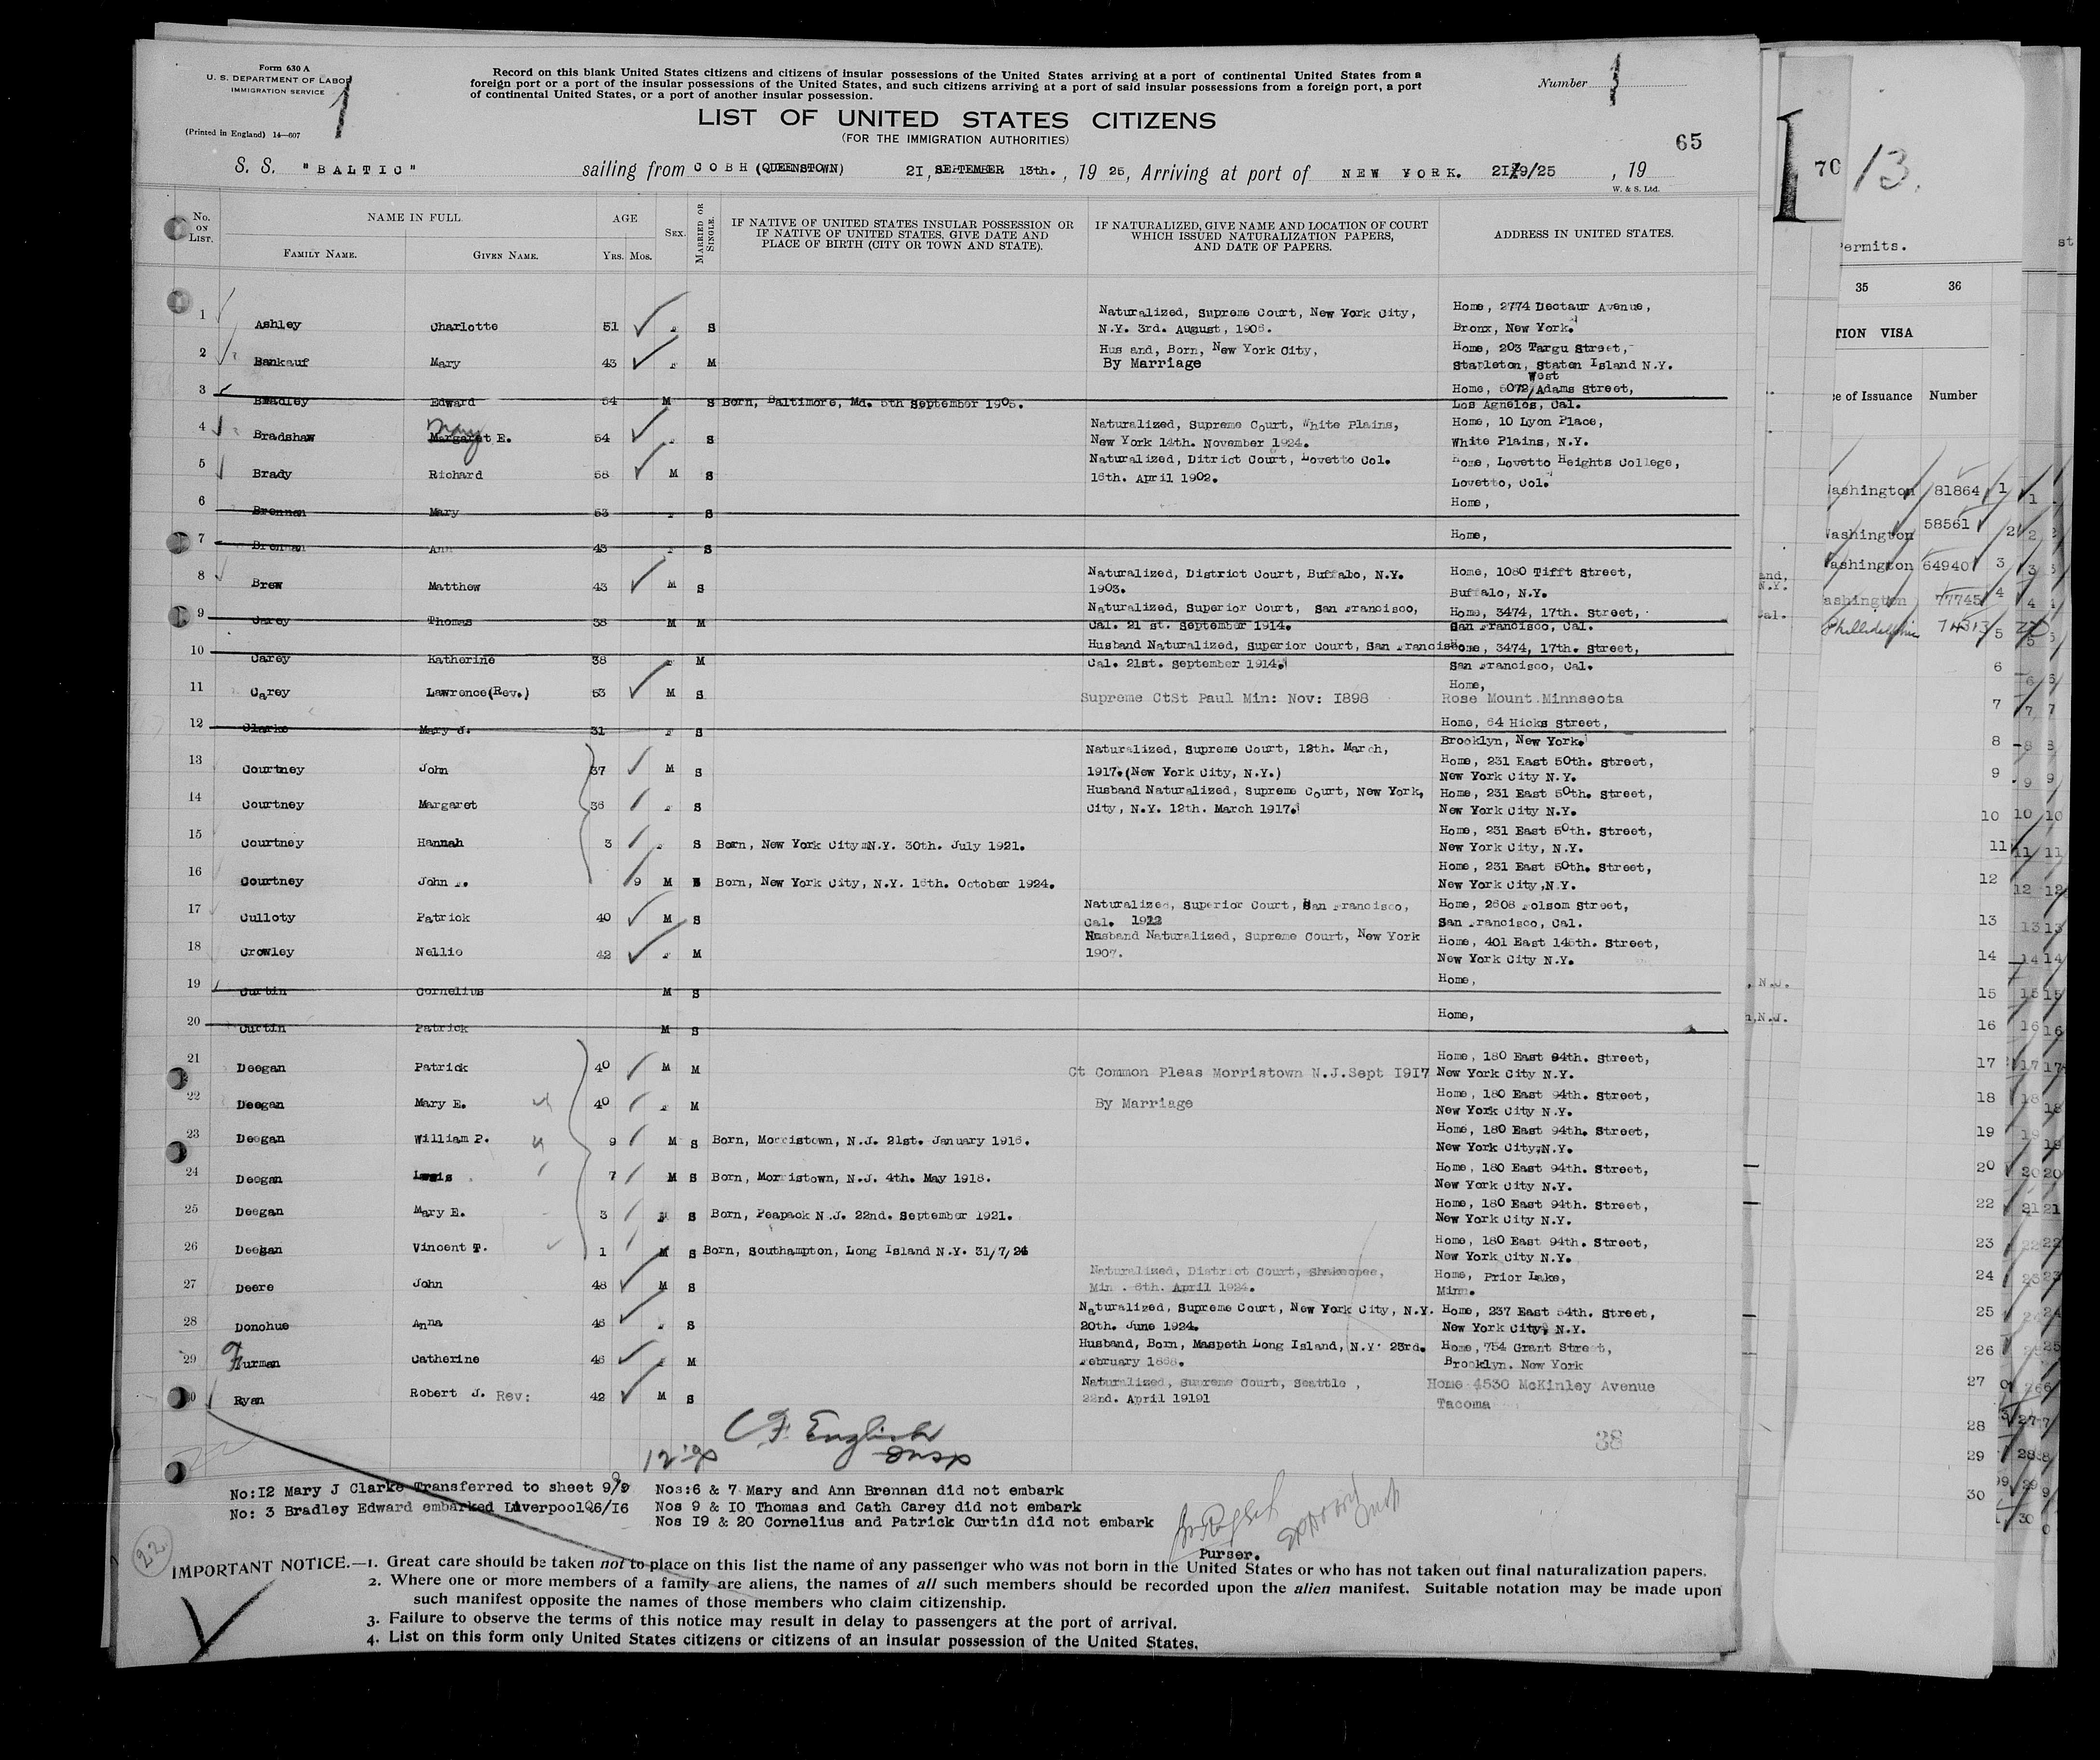 Form 630 A
U. S. DEPARTMENT OF LABOR
IMMIGRATION SERVICE
(Printed in England) 14—607
1
Record on this blank United States citizens and citizens of insular possessions of the United States arriving at a port of continental United States from a
foreign port or a port of the insular possessions of the United States, and such citizens arriving at a port of said insular possessions from a foreign port, a port
of continental United States, or a port of another insular possession.
Number 1
LIST OF UNITED STATES CITIZENS
(FOR THE IMMIGRATION AUTHORITIES)
65
S. S. "BALTIC" sailing from COBH (QUEENSTOWN) 21, SEPTEMBER 13th., 19 25, Arriving at port of NEW YORK. 21/9/25, 19
W. & S. Ltd.
No. ON LIST. NAME IN FULL AGE SEX. MARRIED OR SINGLE. IF NATIVE OF UNITED STATES INSULAR POSSESSION OR IF NATIVE OF UNITED STATES, GIVE DATE AND PLACE OF BIRTH (CITY OR TOWN AND STATE). IF NATURALIZED, GIVE NAME AND LOCATION OF COURT WHICH ISSUED NATURALIZATION PAPERS, AND DATE OF PAPERS. ADDRESS IN UNITED STATES.
FAMILY NAME. GIVEN NAME. YRS. MOS.
1 Ashley Charlotte 51 F S Naturalized, Supreme Court, New York City, N.Y. 3rd. August, 1906. Home, 2774 Dectaur Avenue, Bronx, New York.
2 Bankauf Mary 43 F M Hus and, Born, New York City, By Marriage Home, 203 Targu Street, Stapleton, Staten Island N.Y.
3 Bradley Edward 54 M S Born, Baltimore, Md. 5th September 1905. Home, 5072/ West Adams Street, Los Agnelos, Cal.
4 Bradshaw Margaret E. Mary 54 F S Naturalized, Supreme Court, White Plains, New York 14th. November 1924. Home, 10 Lyon Place, White Plains, N.Y.
5 Brady Richard 58 M S Naturalized, Ditrict Court, Lovetto Col. 16th. April 1902. Home, Lovetto Heights College, Lovetto, Col.
6 Brennan Mary 53 F S Home,
7 Brennan Ann 43 F S Home,
8 Brew Matthew 43 M S Naturalized, District Court, Buffalo, N.Y. 1903. Home, 1080 Tifft Street, Buffalo, N.Y.
9 Carey Thomas 38 M M Naturalized, Superior Court, San Francisco, Cal. 21 st. September 1914. Home, 3474, 17th. Street, San Francisco, Cal.
10 Carey Katherine 38 F M Husband Naturalized, Superior Court, San Francisco Cal. 21st. September 1914. Home, 3474, 17th. Street, San Francisco, Cal.
11 Carey Lawrence(Rev.) 53 M S Supreme CtSt Paul Min: Nov: I898 Home, Rose Mount Minnseota
12 Clarke Mary J. 31 F S Home, 64 Hicks Street, Brooklyn, New York.
13 Courtney John 37 M S Naturalized, Supreme Court, 12th. March, 1917.(New York City, N.Y.) Home, 231 East 50th. Street, New York City N.Y.
14 Courtney Margaret 36 F S Husband Naturalized, Supreme Court, New York, City, N.Y. 12th. March 1917. Home, 231 East 50th. Street, New York City N.Y.
15 Courtney Hannah 3 F S Born, New York City N.Y. 30th. July 1921. Home, 231 East 50th. Street, New York City, N.Y.
16 Courtney John F. 9 M S Born, New York City, N.Y. 16th. October 1924. Home, 231 East 50th. Street, New York City,N.Y.
17 Culloty Patrick 40 M S Naturalized, Superior Court, San Francisco, Cal. 1912 Home, 2608 Folsom Street, San Francisco, Cal.
18 Crowley Nellie 42 F M Husband Naturalized, Supreme Court, New York 1907. Home, 401 East 146th. Street, New York City N.Y.
19 Curtin Cornelius M S Home,
20 Curtin Patrick M S Home,
21 Deegan Patrick 40 M M Ct Common Pleas Morristown N.J.Sept I9I7 Home, 180 East 94th. Street, New York City N.Y.
22 Deegan Mary E. 40 F M By Marriage Home, 180 East 94th. Street, New York City N.Y.
23 Deegan William P. 9 M S Born, Morristown, N.J. 21st. January 1916. Home, 180 East 94th. Street, New York City,N.Y.
24 Deegan Louis 7 M S Born, Morristown, N.J. 4th. May 1918. Home, 180 East 94th. Street, New York City N.Y.
25 Deegan Mary E. 3 F S Born, Peapack N.J. 22nd. September 1921. Home, 180 East 94th. Street, New York City N.Y.
26 Deegan Vincent T. 1 M S Born, Southampton, Long Island N.Y. 31/7/24 Home, 180 East 94th. Street, New York City N.Y.
27 Deere John 48 M S Naturalized, District Court, Shakeopee, Min . 6th. April 1924. Home, Prior Lake, Minn.
28 Donohue Anna 46 F S Naturalized, Supreme Court, New York City, N.Y. 20th. June 1924. Home, 237 East 54th. Street, New York City, N.Y.
29 Furman Catherine 46 F M Husband, Born, Maspeth Long Island, N.Y. 23rd. February 1868. Home, 754 Grant Street, Brooklyn. New York
30 Ryan Robert J. Rev: 42 M S Naturalized, Supreme Court, Seattle, 22nd. April 19191 Home 4530 McKinley Avenue Tacoma
C F English
Insp
38
No:I2 Mary J Clarke Transferred to sheet 9/9
No: 3 Bradley Edward embarked Liverpool 26/I6
Nos:6 & 7 Mary and Ann Brennan did not embark
Nos 9 & IO Thomas and Cath Carey did not embark
Nos I9 & 20 Cornelius and Patrick Curtin did not embark
Purser.
22
IMPORTANT NOTICE.—1. Great care should be taken not to place on this list the name of any passenger who was not born in the United States or who has not taken out final naturalization papers.
2. Where one or more members of a family are aliens, the names of all such members should be recorded upon the alien manifest. Suitable notation may be made upon
such manifest opposite the names of those members who claim citizenship.
3. Failure to observe the terms of this notice may result in delay to passengers at the port of arrival.
4. List on this form only United States citizens or citizens of an insular possession of the United States.
70
13.
ermits.
35 36
TION VISA
e of Issuance Number
Washington 81864 1
Washington 58561 2
Washington 64940 3
ashington 77745 4
Philidelphia 74313 5
6
7
8
9
10
11
12
13
14
15
16
17
18
19
20
22
23
24
25
26
27
28
29
30